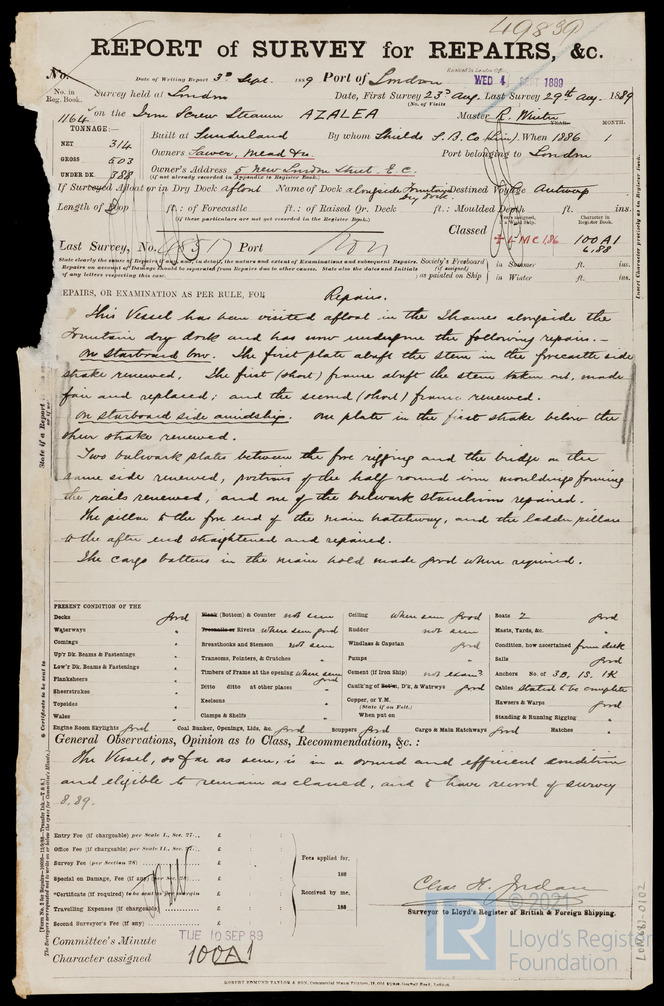 49839
REPORT of SURVEY for REPAIRS, &c.
No. Date of Writing Report 3rd Sept. 1889 Port of London
WED. 4 SEPT 1889
No. in Reg. Book. Survey held at London Date, First Survey 23rd Aug. Last Survey 29th Aug. 1889
(No. of Visits
1164 on the Iron Screw Steamer AZALEA Master R. Winter
TONNAGE:— YEAR. MONTH.
NET 314 Built at Sunderland By whom Shields S.B. Co (Lim). When 1886 1
GROSS 503 Owners Port belonging to London
UNDER DK. 388 Owner's Address 5 New London Street. E.C.
(If not already recorded in Appendix to Register Book.)
If Surveyed Afloat or in Dry Dock afloat Name of Dock alongside Fountain Dry Dock Destined Voyage Antwerp
Length of Poop ft.: of Forecastle ft.: of Raised Qr. Deck ft.: Moulded Depth ft. ins.
(If these particulars are not yet recorded in the Register Book.)
Classed 100A1
6.88
Last Survey, No. 48517 Port Lon
Society's Freeboard (if assigned) as painted on Ship in Summer ft. ins.
in Winter ft. ins.
REPAIRS, OR EXAMINATION AS PER RULE, FOR Repairs.
This Vessel has been visited afloat in the Thames alongside the
Fountain dry dock and has now undergone the following repairs.—
On starboard bow. The first plate abaft the stem in the forecastle side
strake renewed. The first (short) frame abaft the stem taken out, made
fair and replaced; and the second (short) frame renewed.
On starboard side amidship. One plate in the first strake below the
sheer strake renewed.
Two bulwark plates between the fore rigging and the bridge on the
same side renewed, portions of the half round iron mouldings forming
the rails renewed, and one of the bulwark stanchions repaired.
The pillar to the fore end of the main hatchway, and the ladder pillar
to the after end straightened and repaired.
The cargo battens in the main hold made good where required.
PRESENT CONDITION OF THE
Decks good (Bottom) & Counter not seen Ceiling where seen good Boats 2 good
Waterways " or Rivets where seen good Rudder not seen Masts, Yards, &c. "
Comings " Breasthooks and Stemson not seen Windlass & Capstan good Condition, how ascertained from deck
Up'r Dk. Beams & Fastenings " Transoms, Pointers, & Crutches " Pumps " Sails good
Low'r Dk. Beams & Fastenings " Timbers of Frame at the opening where seen good Cement (if Iron Ship) not exam? Anchors No. of 3B, 1S, 1K
Planksheers " Ditto ditto at other places " Caulk'ng of D'k, & Watrwys good Cables stated to be complete
Sheerstrakes " Keelsons " Copper, or Y.M. Hawsers & Warps good
Topsides " Clamps & Shelfs " (State if on Felt.) Standing & Running Rigging "
Wales " When put on
Engine Room Skylights good Coal Bunker, Openings, Lids, &c. good Scuppers good Cargo & Main Hatchways good Hatches "
General Observations, Opinion as to Class, Recommendation, &c. :
The Vessel, so far as seen, is in a sound and efficient condition
and eligible to remain as classed, and to have record of survey
8.89.
Entry Fee (if chargeable) per Scale I., Sec. 27... £ : :
Office Fee (if chargeable) per Scale II., Sec. 27... £ : :
Survey Fee (per Section 28) £ : : Fees applied for,
Special on Damage, Fee (if any) (per Sec. 28) £ : : 188
*Certificate (if required) to be sent as per margin £ : : Received by me,
Travelling Expenses (if chargeable) £ : : 188
Second Surveyor's Fee (if any) £ : :
Chas. H. Jordan
Surveyor to Lloyd's Register of British & Foreign Shipping.
Committee's Minute TUE 10 SEP 89
Character assigned 100A1
© 2021
LR
Lloyd's Register
Foundation
LON681-0102
ROBERT EDMUND TAYLOR & SON, Commercial Steam Printers, 19, Old Street, Goswell Road, London.